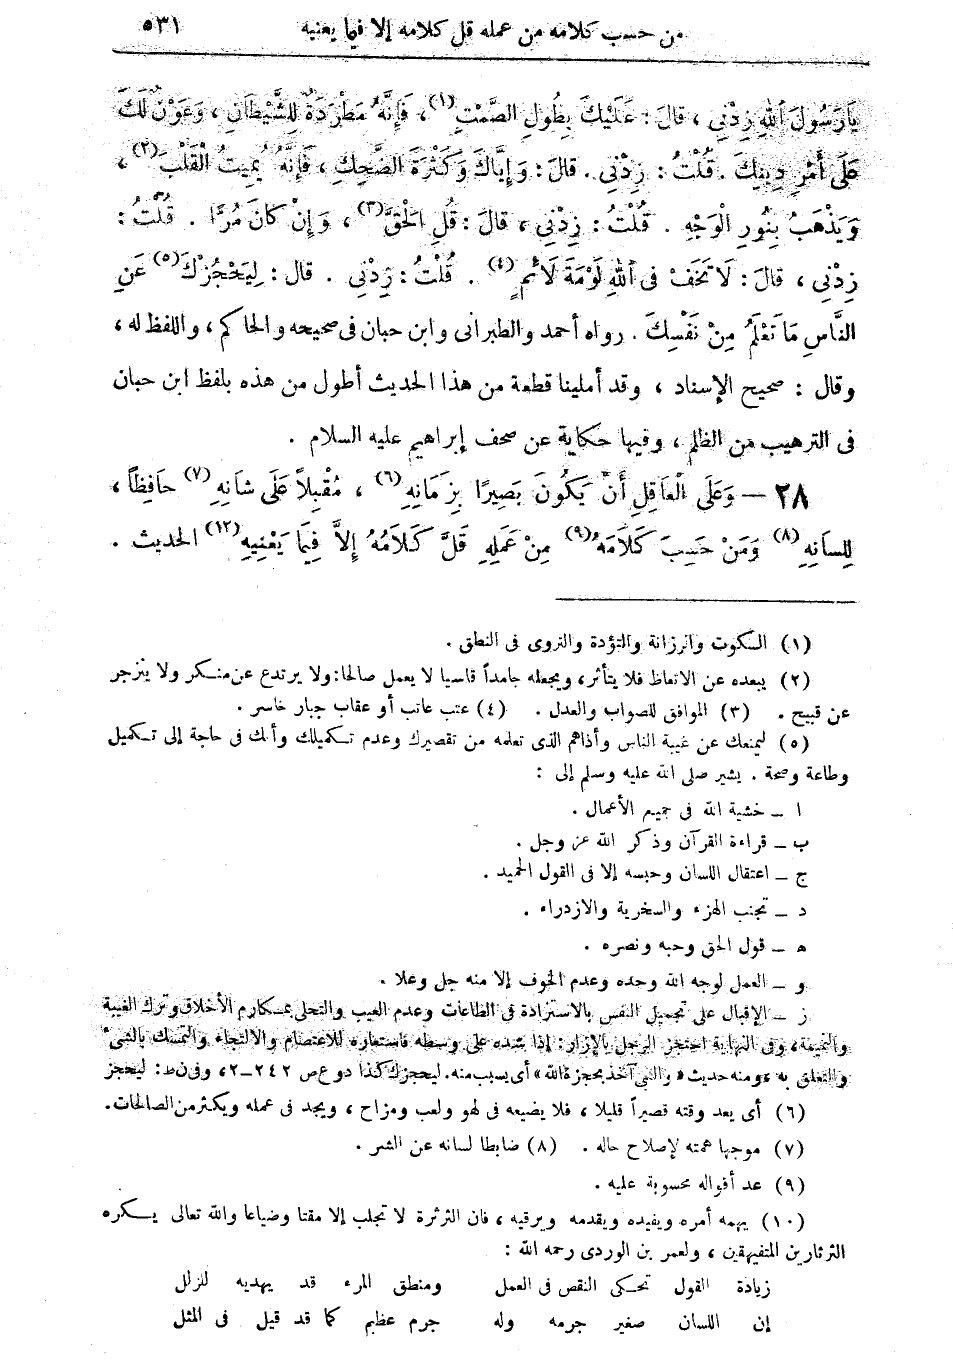 من حسب كلامه من عمله قل كلامه إلا فيما يعنيه ٥٣١
يَارَسُولَ ٱللهِ زِدْنِي ، قالَ : عَلَيْكَ بِطُولِ الصَّمْتِ (١) ، فَإِنَّهُ مَطْرَدَةٌ لِلشَّيْطَانِ ، وَعَوْنٌ لَكَ
عَلَى أَمْرِ دِينِكَ . قُلْتُ : زِدْنِي . قالَ : وَإِيَّاكَ وَكَثْرَةَ الضَّحِكِ ، فَإِنَّهُ يُمِيتُ الْقَلْبَ (٢) ،
وَيَذْهَبُ بِنُورِ الْوَجْهِ . قُلْتُ : زِدْنِي ، قالَ : قُلِ الْحَقَّ (٣) ، وَإِنْ كَانَ مُرًّا . قُلْتُ :
زِدْنِي ، قالَ : لَا تَخَفْ فى ٱللهِ لَوْمَةَ لَائمٍ (٤) . قُلْتُ : زِدْنِي . قال : لِيَحْجُزْكَ (٥) عَنِ
النَّاسِ مَا تَعْلَمُ مِنْ نَفْسِكَ . رواه أحمد والطبرانى وابن حبان فى صحيحه والحاكم ، واللفظ له ،
وقال : صحيح الإسناد ، وقد أملينا قطعة من هذا الحديث أطول من هذه بلفظ ابن حبان
فى الترهيب من الظلم ، وفيها حكاية عن صحف إبراهيم عليه السلام .
٢٨ — وَعَلَى الْعَاقِلِ أَنْ يَكُونَ بَصِيرًا بِزَمَانِهِ (٦) ، مُقْبِلاً عَلَى شَانِهِ (٧) حَافِظاً ،
لِلِسَانِهِ (٨) وَمَنْ حَسِبَ كَلَامَهُ (٩) مِنْ عَمَلِهِ قَلَّ كَلَامُهُ إِلاَّ فِيمَا يَعْنِيهِ (١٢) الحديث .
(١) السكوت والرزانة والتؤدة والتروى فى النطق .
(٢) يبعده عن الاتعاظ فلا يتأثر، ويجعله جامداً قاسيا لا يعمل صالحا: ولا يرتدع عن منكر ولا ينزجر
عن قبيح . (٣) الموافق للصواب والعدل . (٤) عتب عاتب أو عقاب جبار خاسر .
(٥) ليمنعك عن غيبة الناس وأذاهم الذى تعلمه من تقصيرك وعدم تكميلك وأنك فى حاجة إلى تكميل
وطاعة وصحة . يشير صلى الله عليه وسلم إلى :
ا ــ خشية الله فى جميع الأعمال .
ب ــ قراءة القرآن وذكر الله عز وجل .
ج ــ اعتقال اللسان وحبسه إلا فى القول الحميد .
د ــ تجنب الهزء والسخرية والازدراء .
ه ــ قول الحق وحبه ونصره .
و ــ العمل لوجه الله وحده وعدم الخوف إلا منه جل وعلا .
ز ــ الإقبال على تجميل النفس بالاستزادة فى الطاعات وعدم العيب والتحلى بمكارم الأخلاق وترك الغيبة
والنميمة، وفى النهاية احتجز الرجل بالإزار: إذا شده على وسطه فاستعاره للاعتصام والالتجاء والتمسك بالشىء
والتعلق به ، ومنه حديث « والنبى آخذ بحجزة الله » أى بسبب منه. ليحجزك كذا د و ع ص ٢٤٢-٢، وفى ن ط: ليحجز
(٦) أى يعد وقته قصيراً قليلا ، فلا يضيعه فى لهو ولعب ومزاح ، ويجد فى عمله ويكثر من الصالحات.
(٧) موجها همته لإصلاح حاله . (٨) ضابطا لسانه عن الشر .
(٩) عد أقواله محسوبة عليه .
(١٠) يهمه أمره ويفيده ويقدمه ويرقيه ، فان الثرثرة لا تجلب إلا مقتا وضياعا والله تعالى يكره
الثرثارين المتفيهقين ، ولعمر بن الوردى رحمه الله :
زيادة القول تحكى النقص فى العمل ومنطق المرء قد يهديه للزلل
إن اللسان صغير جرمه وله جرم عظيم كما قد قيل فى المثل